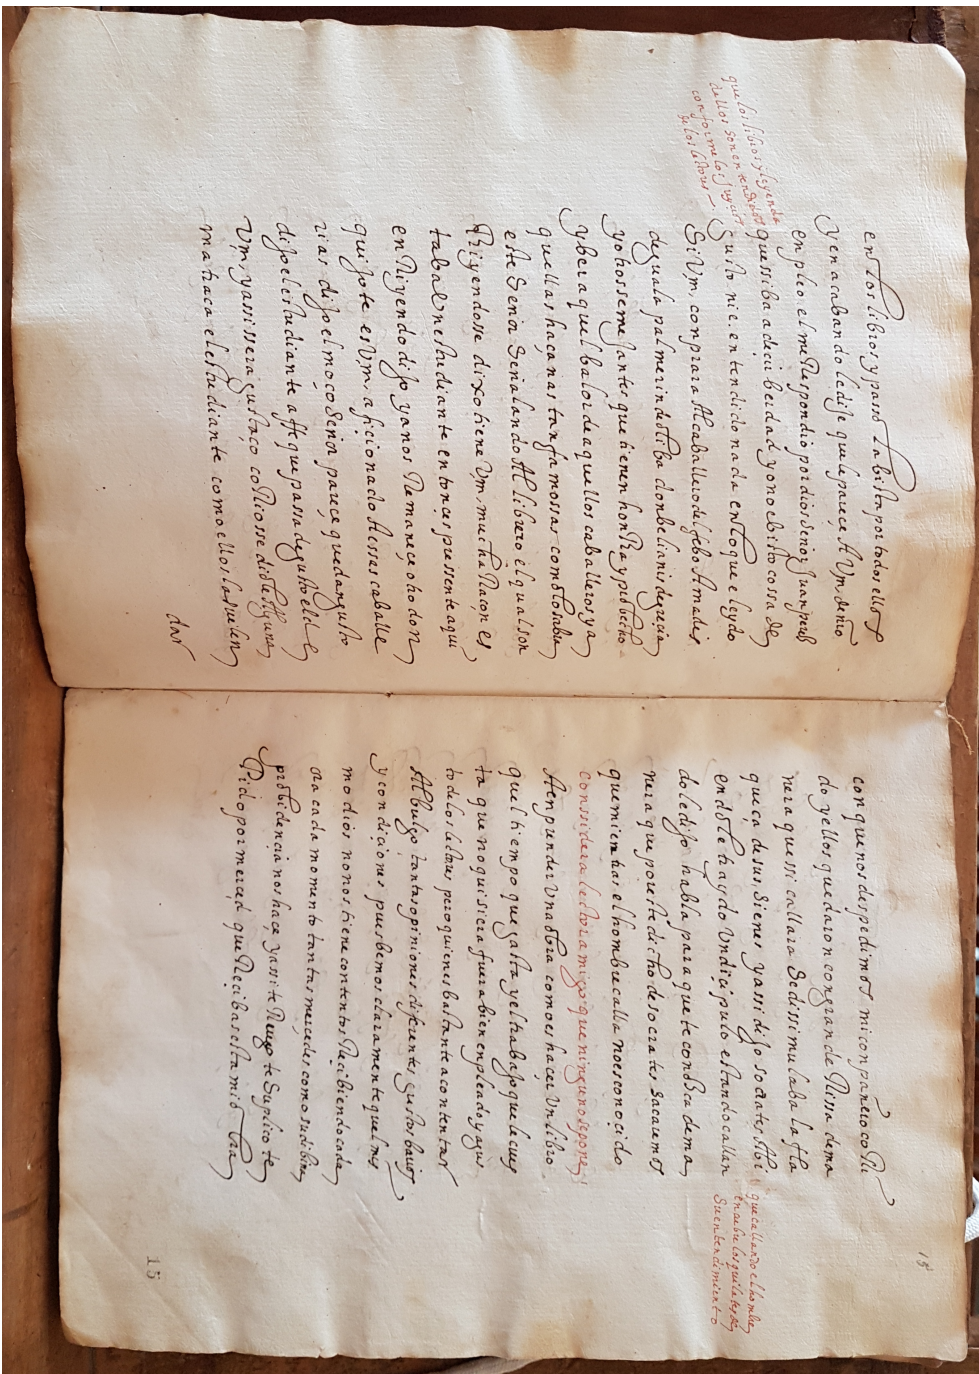 que los libros y leyenda
dellos son entendidos
conforme los juyçios
de los letores
en los libros y passo la bista por todos ellos
y en acabando le dije que le pareçe A Vm, de mio
enpleo el me Respondio por dios Señor Juan pereß
que ssi ba a deçir berdad yo no e bisto cossa de
gusto ni e entendido nada en lo que e leydo
Si Vm, conprara Al caballero del febo Amadis
de gaula palmerin de oliba don belianis de greçia
y otros semejantes que tienen honRa y probecho
y bera aquel balor de aquellos caballeros ya
quellas haçañas tan famossas como lo sabra
este Señor Señalando Al librero el qual son
Riyendosse dixo tiene Vm, mucha Raçon es
taba Vn estudiante entonçes pressente a qui
en Riyendo dijo ya nos Remaneçe otro don
quijote es Vm, afiçionado A esses caballe
rias dijo el moço Señor pareçe que dan gusto
dijo el estudiante a ffe que passa de gusto el de
Vm, y assi ssera gustaço coRiosse diole Alguna
matraca el estudiante como ellos las suelen
dar
15
con que nos despedimos mi conpañero coRi
do y ellos quedaron con grande Rissa de ma
nera que ssi callara Se dissimulaba la fla
queça de sus Sienes y assi dijo socrates Abi
endole traydo Vn diçipulo estando callan
do le dijo habla para que te conosca de ma
nera que por este dicho de socrates sacaremos
que mientras el hombre calla no es conocido
considera lector amigo que ninguno se pone
A enprender Vna obra como es haçer Vn libro
quel tiempo que gasta y el trabajo que le cues
ta que no quisiera fuera bien enpleado y a gus
to de los letores pero quien es bastante a contentar
Al bulgo tantas opiniones diferentes gustos barios
y condiçiones pues bemos claramente quel mis
mo dios no nos tiene contentos Reçibiendo cada
ora cada momento tantas merçedes como su dibina
probidencia nos haçe, y assi te Ruego te Suplico te
Pido por merçed que Reçibas esta mi obra
que callando el hombre
encubre los quilates de
Su entendimiento
15